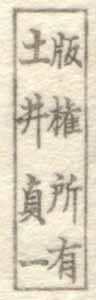 版権所有
土井貞一